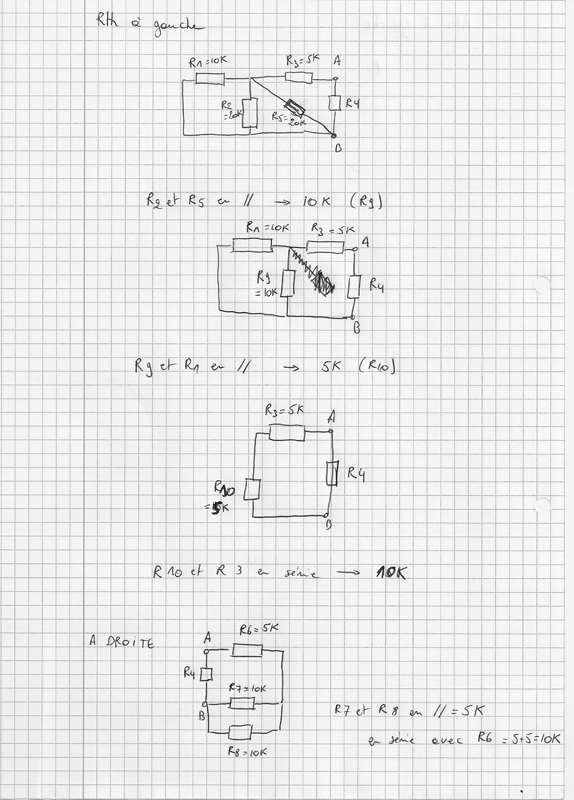 Rth à gauche
R1=10K
R3=5K
A
R2
=20K
R5=20K
R4
B
R2 et R5 en // → 10K (R9)
R1=10K
R3=5K
A
R9
=10K
R4
B
R9 et R1 en // → 5K (R10)
R3=5K
A
R10
=5K
R4
B
R10 et R3 en série → 10K
A DROITE
A
R6=5K
R4
R7=10K
B
R8=10K
R7 et R8 en // = 5K
en série avec R6 = 5+5=10K